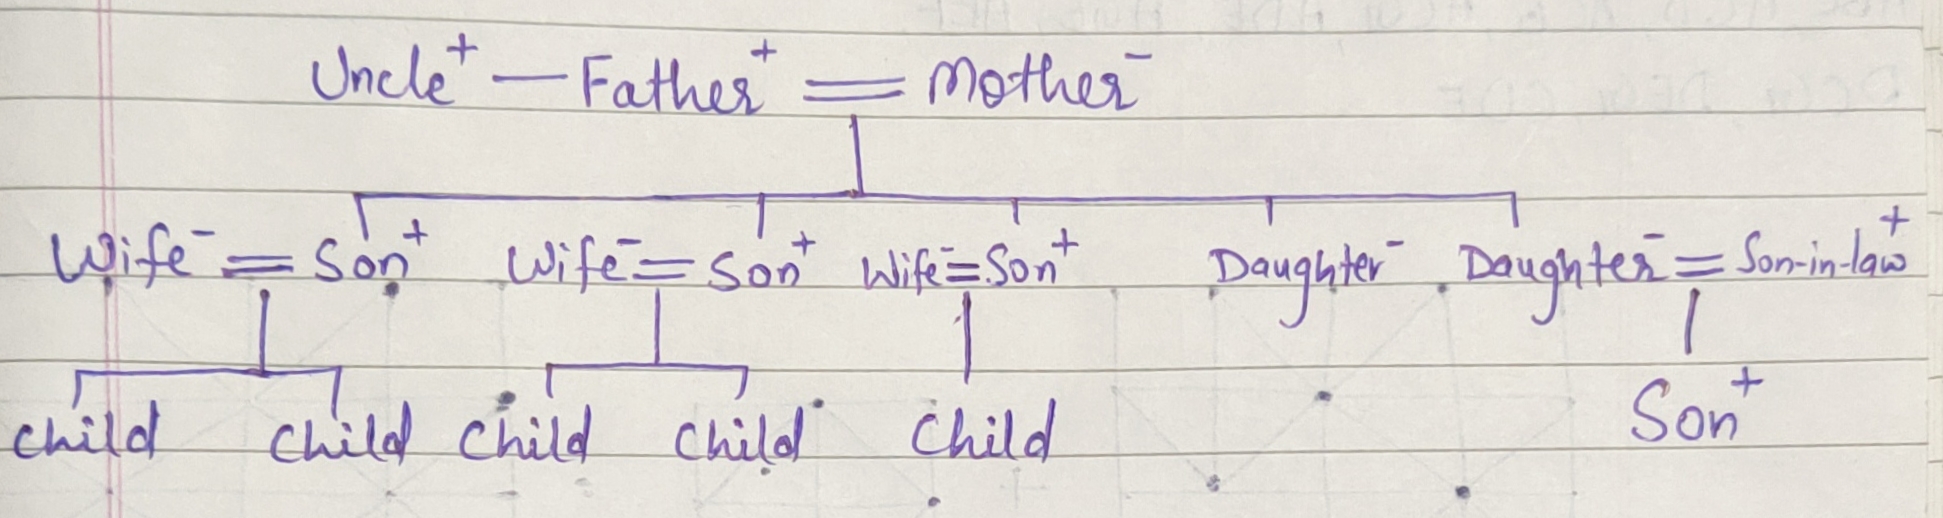 Uncle⁺ — Father⁺ = Mother⁻
Wife⁻ = Son⁺ Wife⁻ = Son⁺ Wife⁻ = Son⁺ Daughter⁻ Daughter⁻ = Son-in-law⁺
child child child child child Son⁺